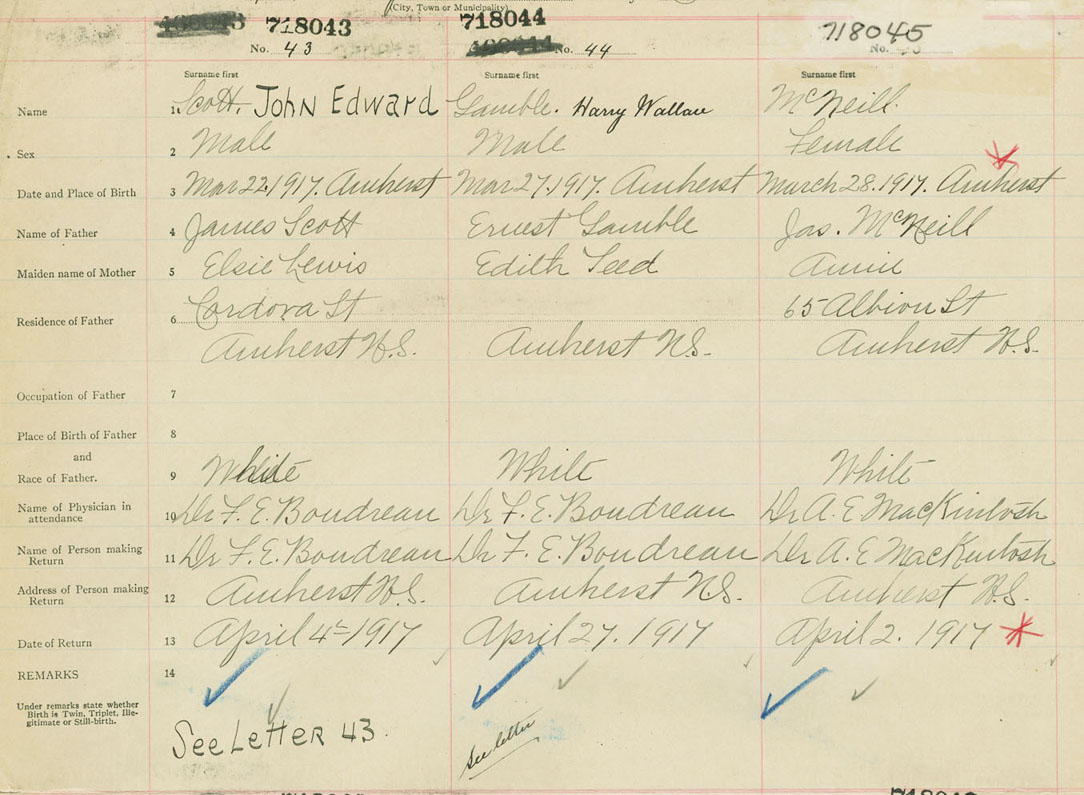 (City, Town or Municipality)
718043 718044 718045
No. 43 No. 44 No.
Surname first Surname first Surname first
Name 1 Scott. John Edward Gamble. Harry Wallace McNeill
Sex 2 Male Male Female
Date and Place of Birth 3 Mar 22, 1917. Amherst Mar 27, 1917. Amherst March 28. 1917. Amherst
Name of Father 4 James Scott Ernest Gamble Jas. McNeill
Maiden name of Mother 5 Elsie Lewis Edith Seed Annie
Cordova St 65 Albion St
Residence of Father 6
Amherst N.S. Amherst N.S. Amherst N.S.
Occupation of Father 7
Place of Birth of Father 8
and
Race of Father. 9 White White White
Name of Physician in
attendance 10 Dr F. E. Boudreau Dr F. E. Boudreau Dr A. E MacKintosh
Name of Person making
Return 11 Dr F. E. Boudreau Dr F. E. Boudreau Dr A. E MacKintosh
Address of Person making
Return 12 Amherst N.S. Amherst N.S. Amherst N.S.
Date of Return 13 April 4th 1917 April 27. 1917 April 2. 1917
REMARKS 14
Under remarks state whether
Birth is Twin, Triplet, Ille-
gitimate or Still-birth.
See Letter 43 See letter